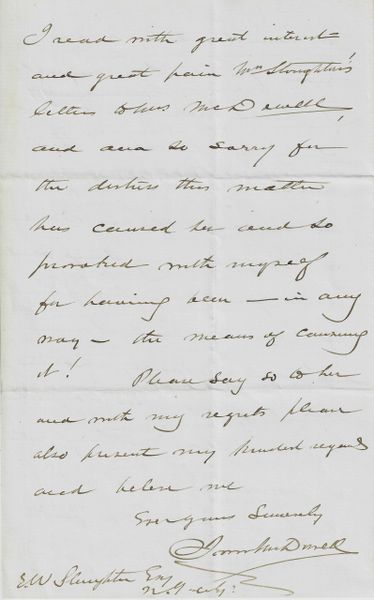 I read with great interest
and great pain Mrs Stoughton's
letters to Mrs McDowell
and am so sorry for
the distress this matter
has caused her and so
provoked with myself
for having been — in any
way — the means of causing
it!
Please say so to her
and with my regrets please
also present my kindest regards
and believe me
Ever yours Sincerely
Irvin McDowell
E.W. Stoughton Esq
N.Y. City.